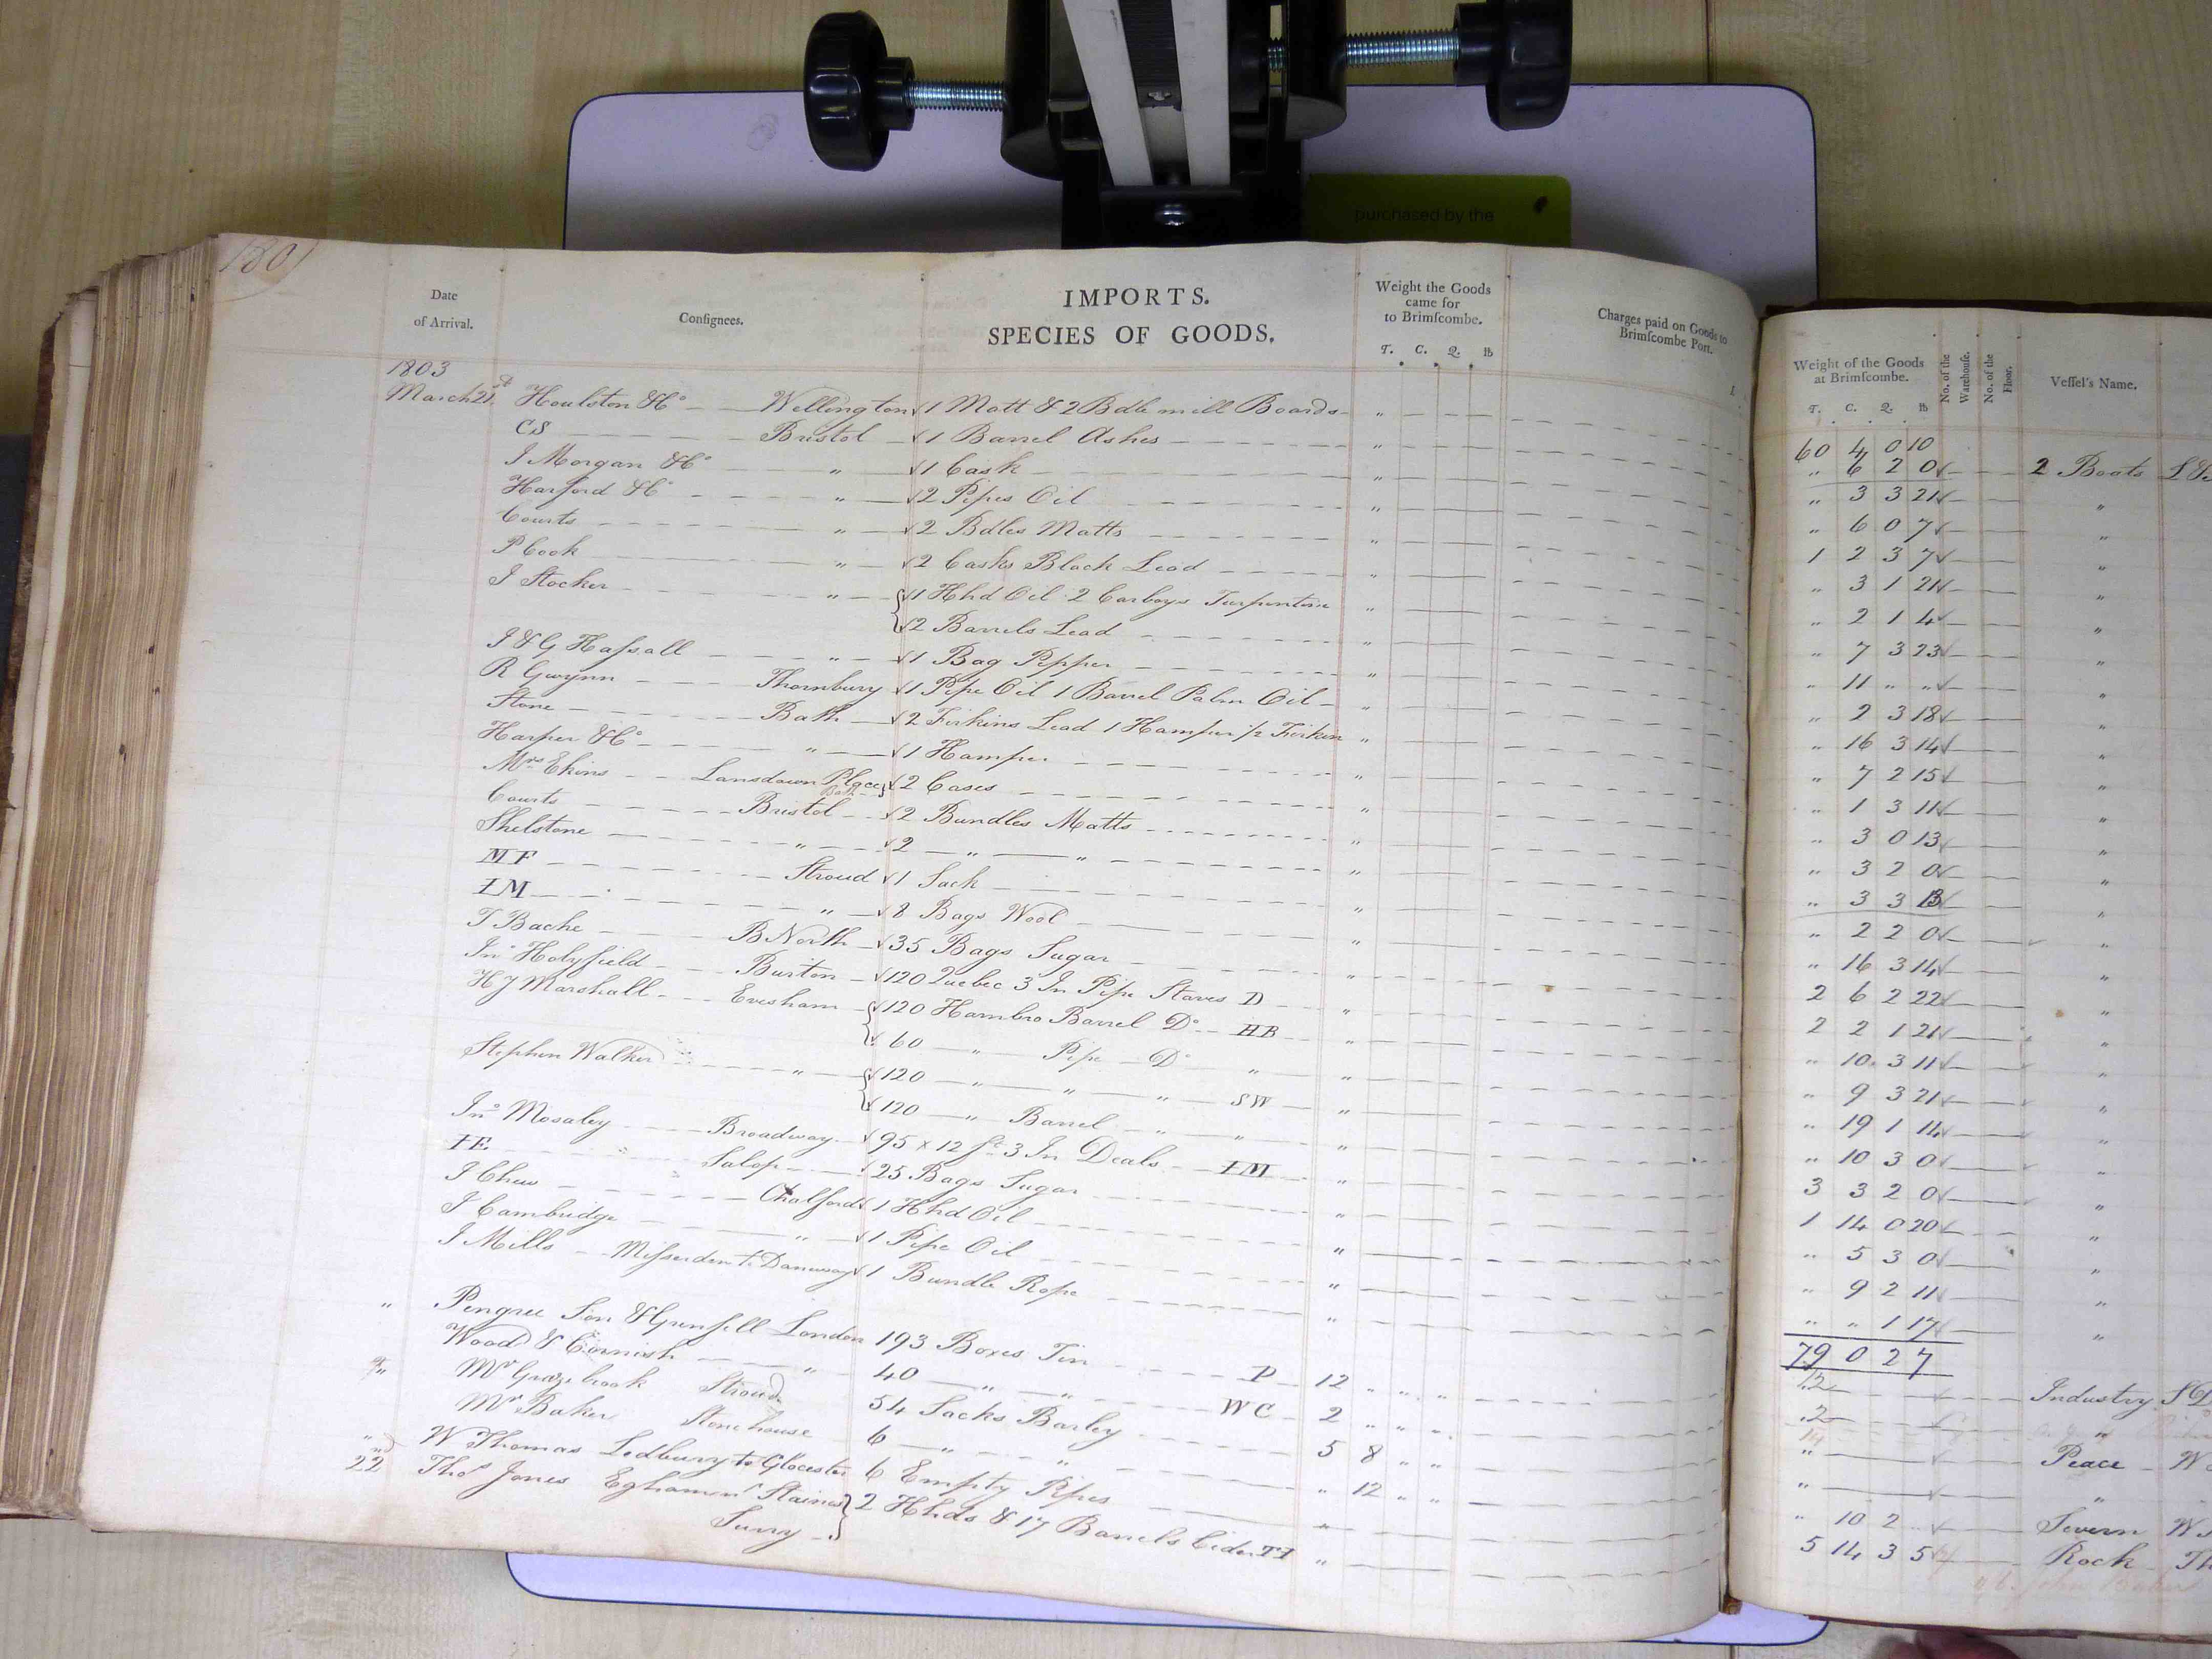 purchased by the
180
Date
of Arrival.
Consignees.
IMPORTS.
SPECIES OF GOODS.
Weight the Goods
came for
to Brimscombe.
T. C. Q. lb
Charges paid on Goods to
Brimscombe Port.
Weight of the Goods
at Brimscombe.
T. C. Q. lb
No. of the Warehouse.
No. of the Floor.
Vessel's Name.
1803
60 4 0 10
March 21st Houlston & Co Wellington 1 Matt & 2 Bdle mill Boards " " 6 2 0 2 Boats
CS Bristol 1 Barrel Ashes " " 3 3 21 "
J Morgan & Co " 1 Cask " " 6 0 7 "
Harford & Co " 2 Pipes Oil " 1 2 3 7 "
Courts " 2 Bdles Matts " " 3 1 21 "
P Cook " 2 Casks Black Lead " " 2 1 4 "
J Stocker " 1 Hhd Oil 2 Carboys Turpentine " " 7 3 23 "
2 Barrels Lead " " 11 " " "
J & G Hassall " 1 Bag Pepper " " 2 3 18 "
R Gwynn Thornbury 1 Pipe Oil 1 Barrel Palm Oil " " 16 3 14 "
Stone Bath 2 Firkins Lead 1 Hamper 1/2 Firkin " " 7 2 15 "
Harper & Co " 1 Hamper " " 1 3 11 "
Mrs Ekins Lansdown Place Bath 2 Cases " " 3 0 13 "
Courts Bristol 2 Bundles Matts " " 3 2 0 "
Shelstone " 2 " " " " 3 3 13 "
MF Stroud 1 Sack " " 2 2 0 "
IM " 8 Bags Wool " " 16 3 14 "
T Bache B North 35 Bags Sugar " 2 6 2 22 "
Jno Holyfield Burton 120 Quebec 3 In Pipe Staves D " 2 2 1 21 "
H J Marshall Evesham 120 Hambro Barrel Do HB " " 10 3 11 "
60 " Pipe Do " " " 9 3 21 "
Stephen Walker " 120 " " " SW " " 19 1 14 "
120 " Barrel " " " " 10 3 0 "
Jno Mosaley Broadway 95 x 12 ft 3 In Deals IM " 3 3 2 0 "
IE Salop 25 Bags Sugar " 1 14 0 20 "
J Chew Chalford 1 Hhd Oil " " 5 3 0 "
J Cambridge " 1 Pipe Oil " " 9 2 11 "
J Mills Missenden to Daneway 1 Bundle Rope " " " 1 17 "
79 0 2 7
" Pengree Son & Grenfell London 193 Boxes Tin P 12 " " " 12 Industry
Wood & Cornish " 40 " " WC 2 " " " 2 "
" Mr Grazebrook Stroud 54 Sacks Barley 5 8 " " " Peace
Mr Baker Stonehouse 6 " " " 12 " " " "
" W Thomas Ledbury to Glocester 6 Empty Pipes " " 10 2 " Severn
22nd Thos Jones Egham nr Staines 2 Hhds & 17 Barrels Cider TI " 5 14 3 5 Rock
Surry